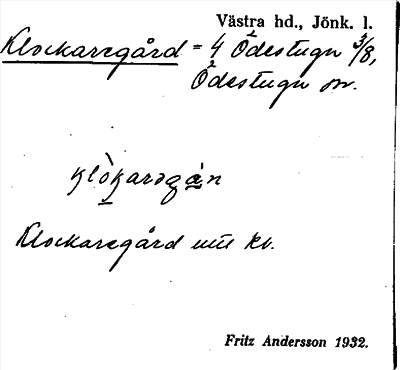 Västra hd., Jönk. l.
Klockaregård = 4 Ödestugu 3/8,
Ödestugu sn.
Klockaregård
Fritz Andersson 1932.